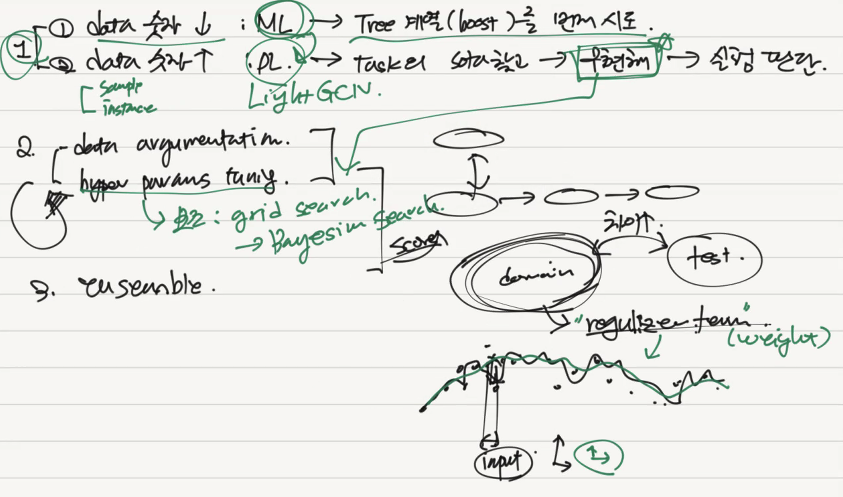 1 ① data 숫자 ↓ : ML → Tree 계열(boost)를 먼저 시도.
② data 숫자 ↑ : DL → task의 sota찾고 → 구현해 → 실험 판단.
sample
instance
LightGCN.
2. - data argumentation.
- hyper params tuning.
→ 보조 : grid search.
→ Bayesian Search.
score
3. ensemble.
차이↑.
domain
test.
"regulizer term"
(weight)
input